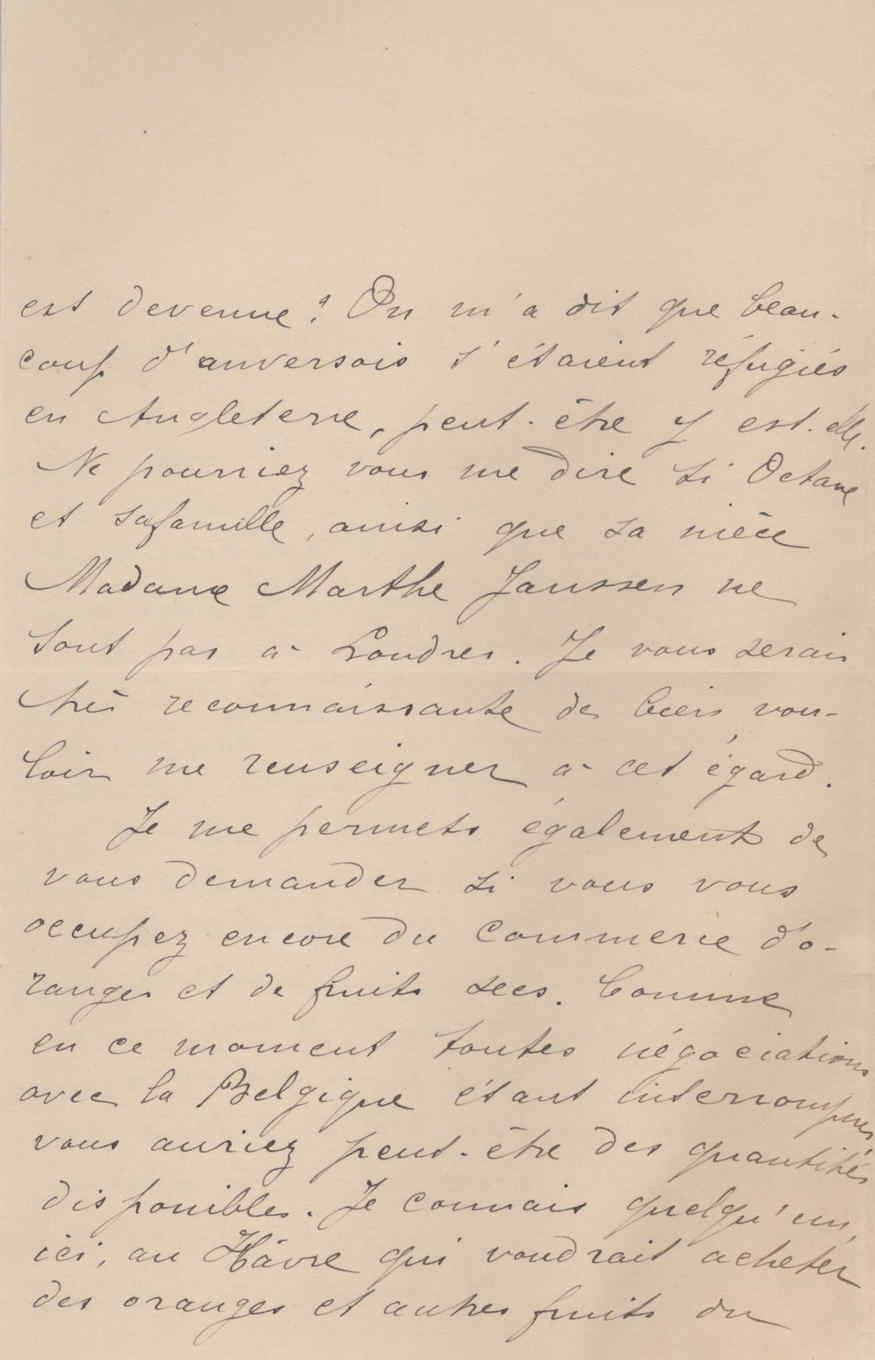 est devenue? On m'a dit que beau-
coup d'anversois s'étaient réfugiés
en Angleterre, peut-être y est-elle.
Ne pourriez vous me dire si Octave
et sa famille, ainsi que sa nièce
Madame Marthe Janssen ne
sont pas à Londres. Je vous serais
très reconnaissante de bien vou-
loir me renseigner à cet égard.
Je me permets également de
vous demander si vous vous
occupez encore du commerce d'o-
ranges et de fruits secs. Comme
en ce moment toutes négociations
avec la Belgique étant interrompues
vous auriez peut-être des quantités
disponibles. Je connais quelqu'un
ici, au Hâvre qui voudrait acheter
des oranges et autres fruits du